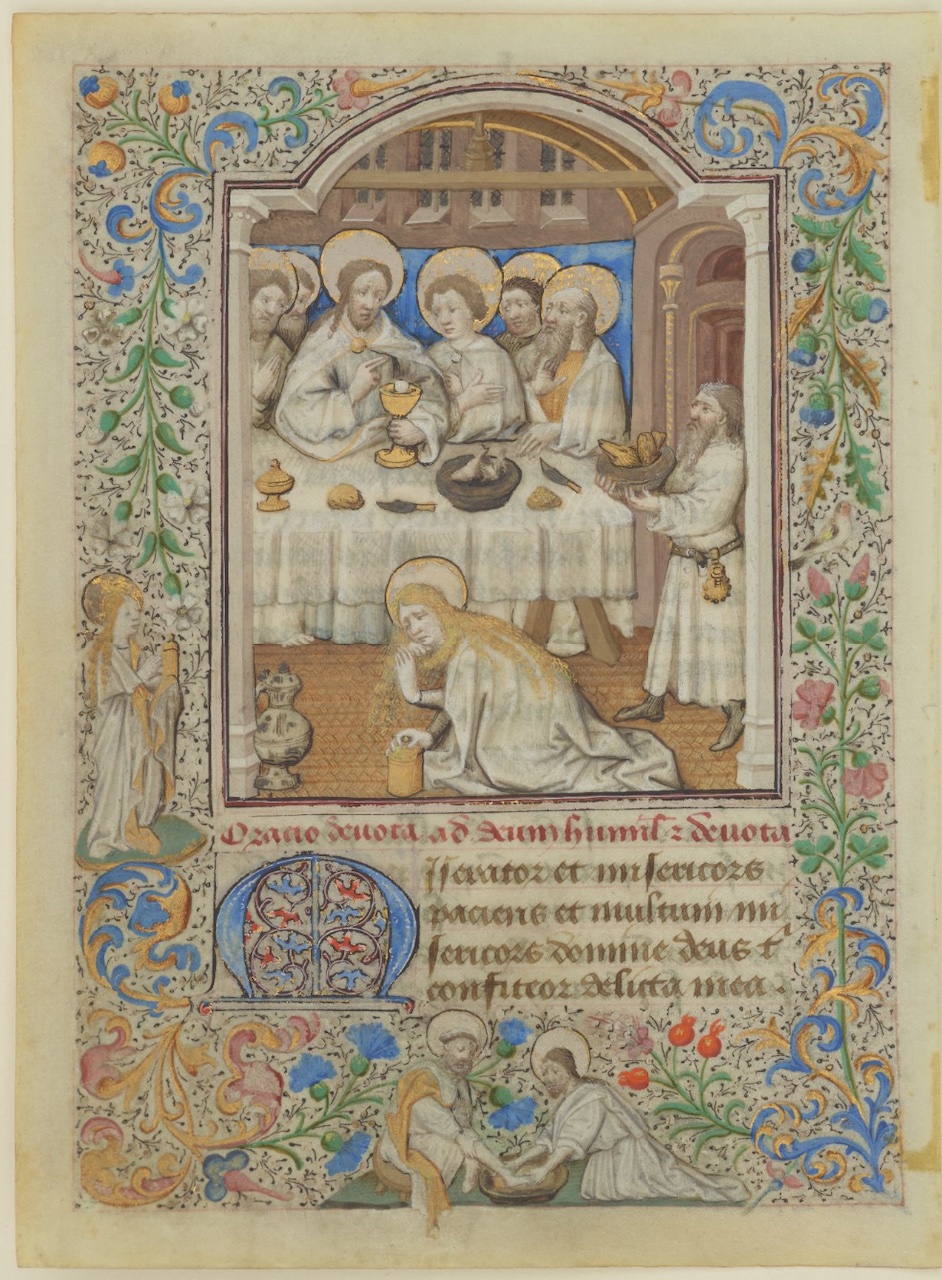 Oratio devota ad deum humil' z devota
Miserator et misericors
paciens et multum mi
sericors domine deus t'
confiteor delicta mea.